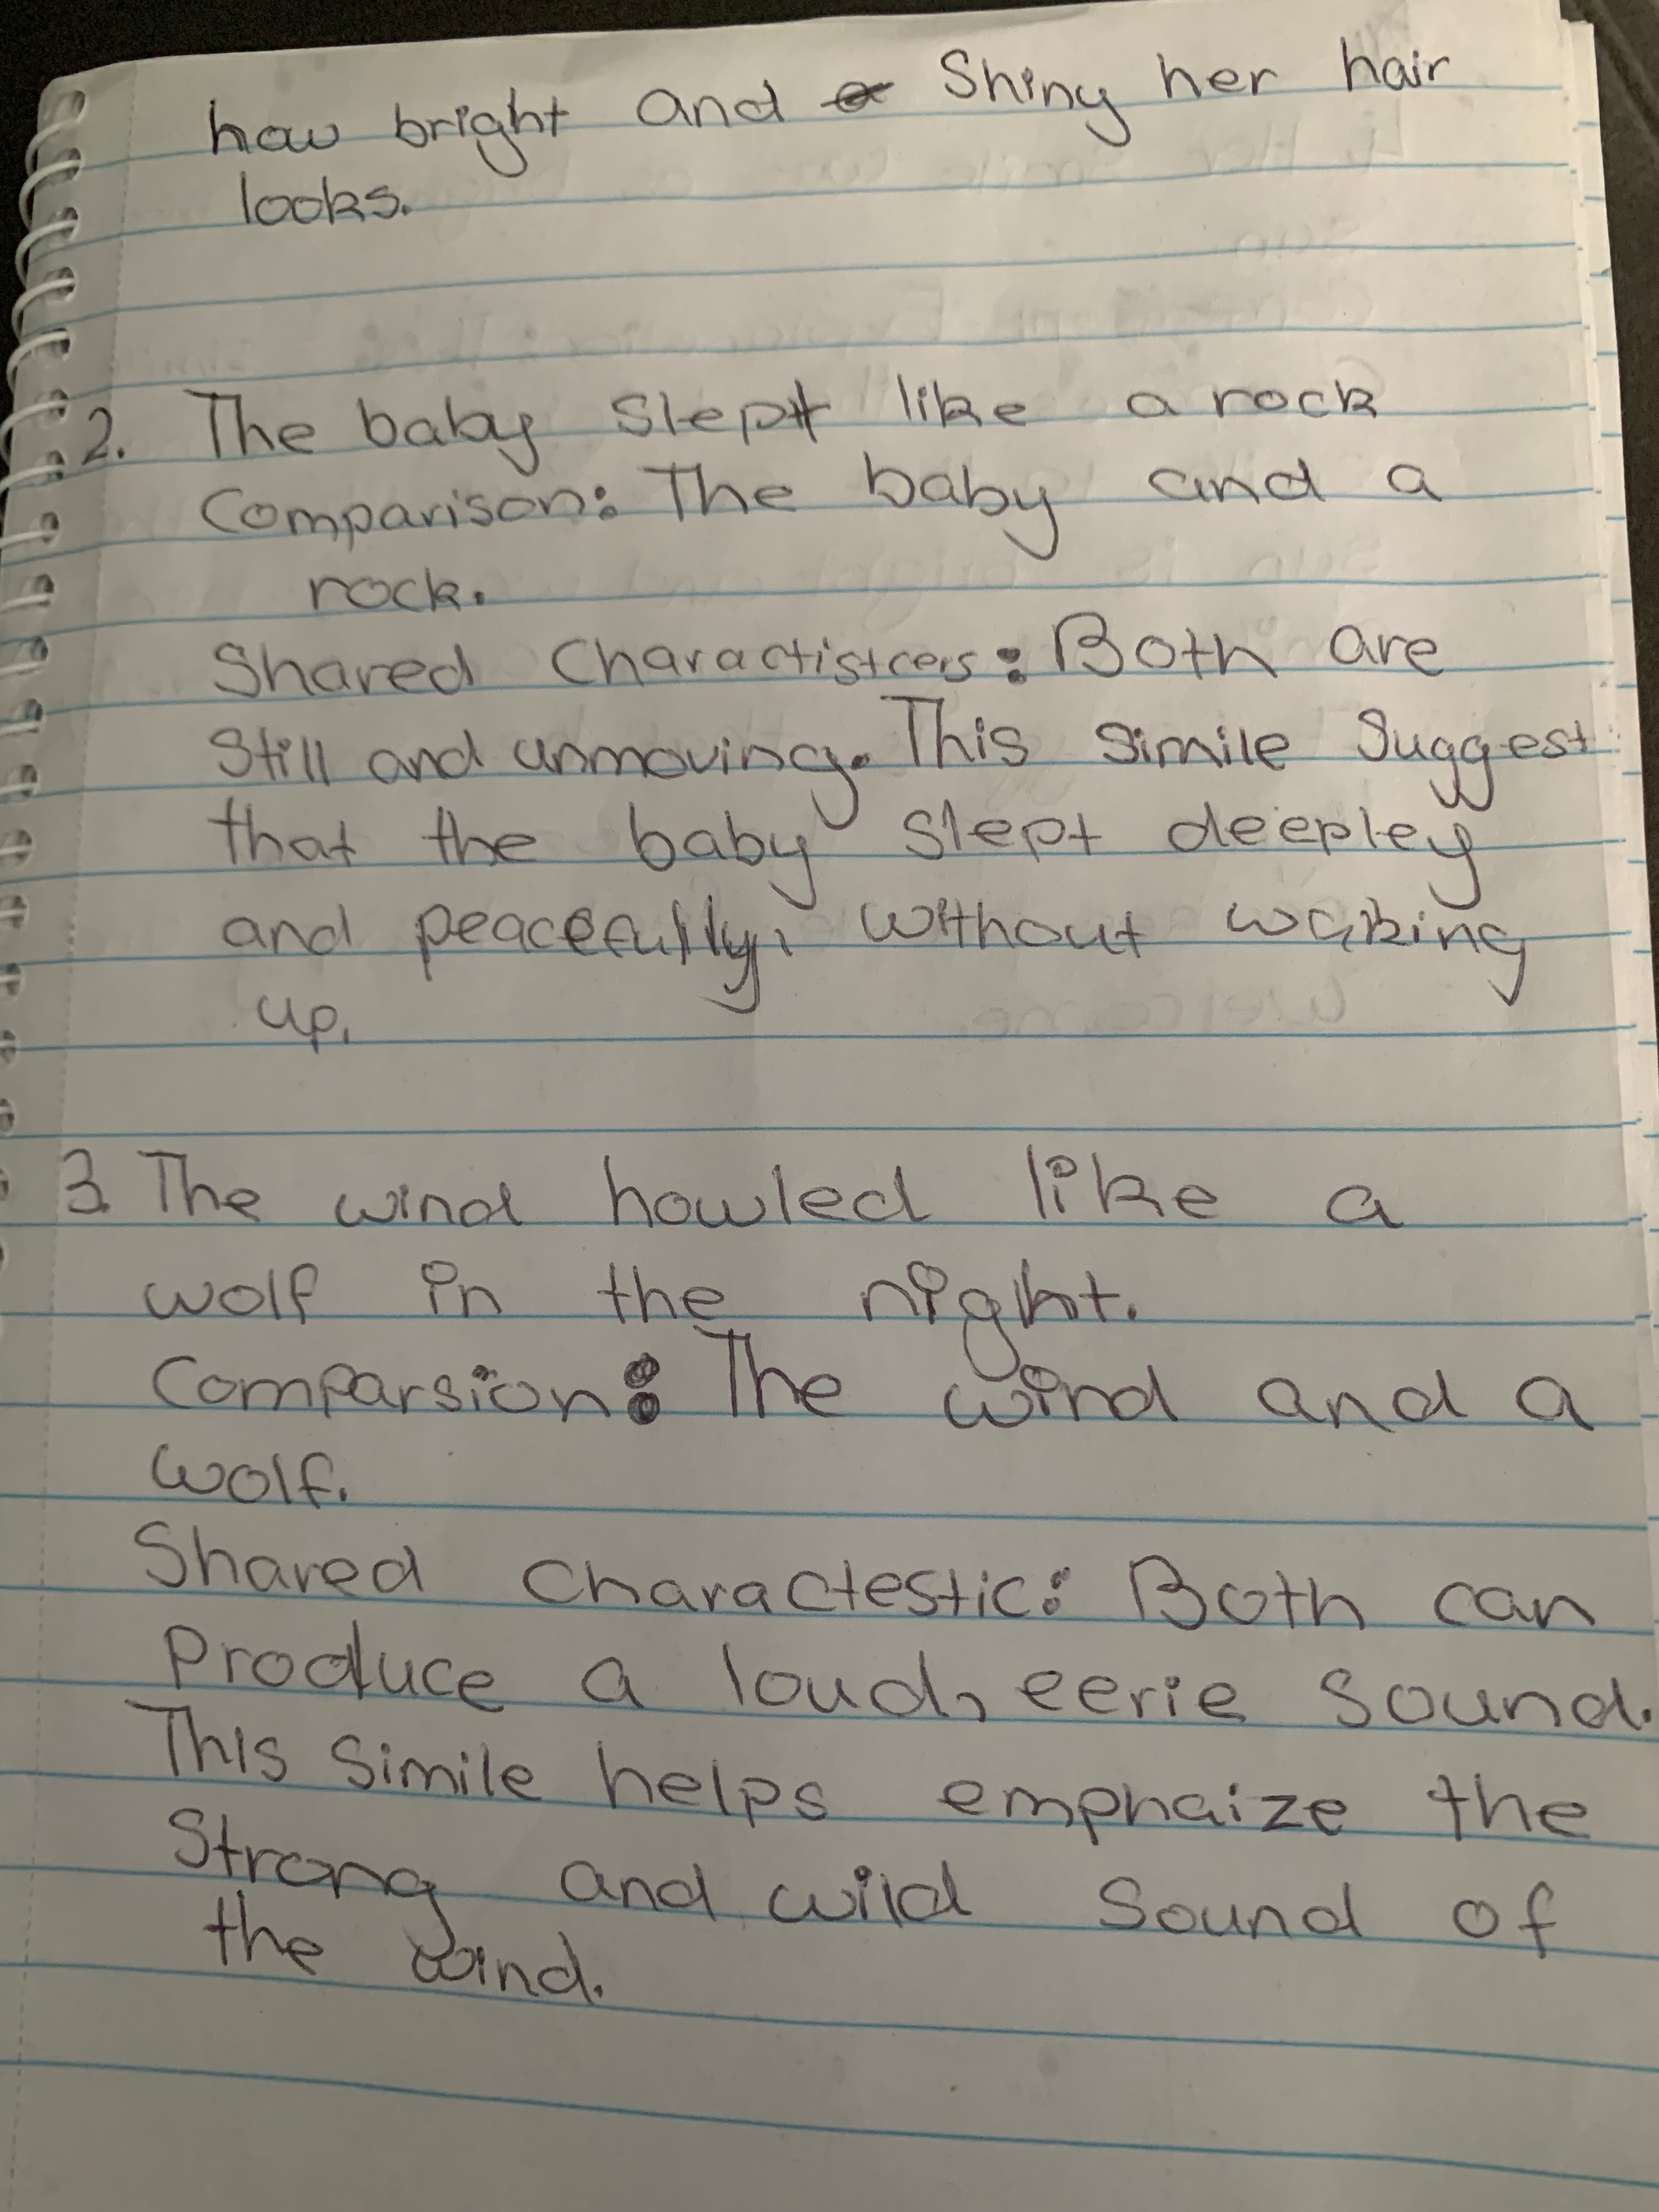 how bright and Shiny her hair
looks.
2. The baby slept like a rock
Comparison: The baby and a
rock.
Shared Charactistcers: Both are
Still and unmoving. This simile Suggest
that the baby slept deepley
and peacefully, without waking
up.
3. The wind howled like a
wolf in the night.
Comparsion: The wind and a
wolf.
Shared Charactestic: Both can
Produce a loud, eerie sound.
This simile helps emphaize the
Strong and wild Sound of
the wind.